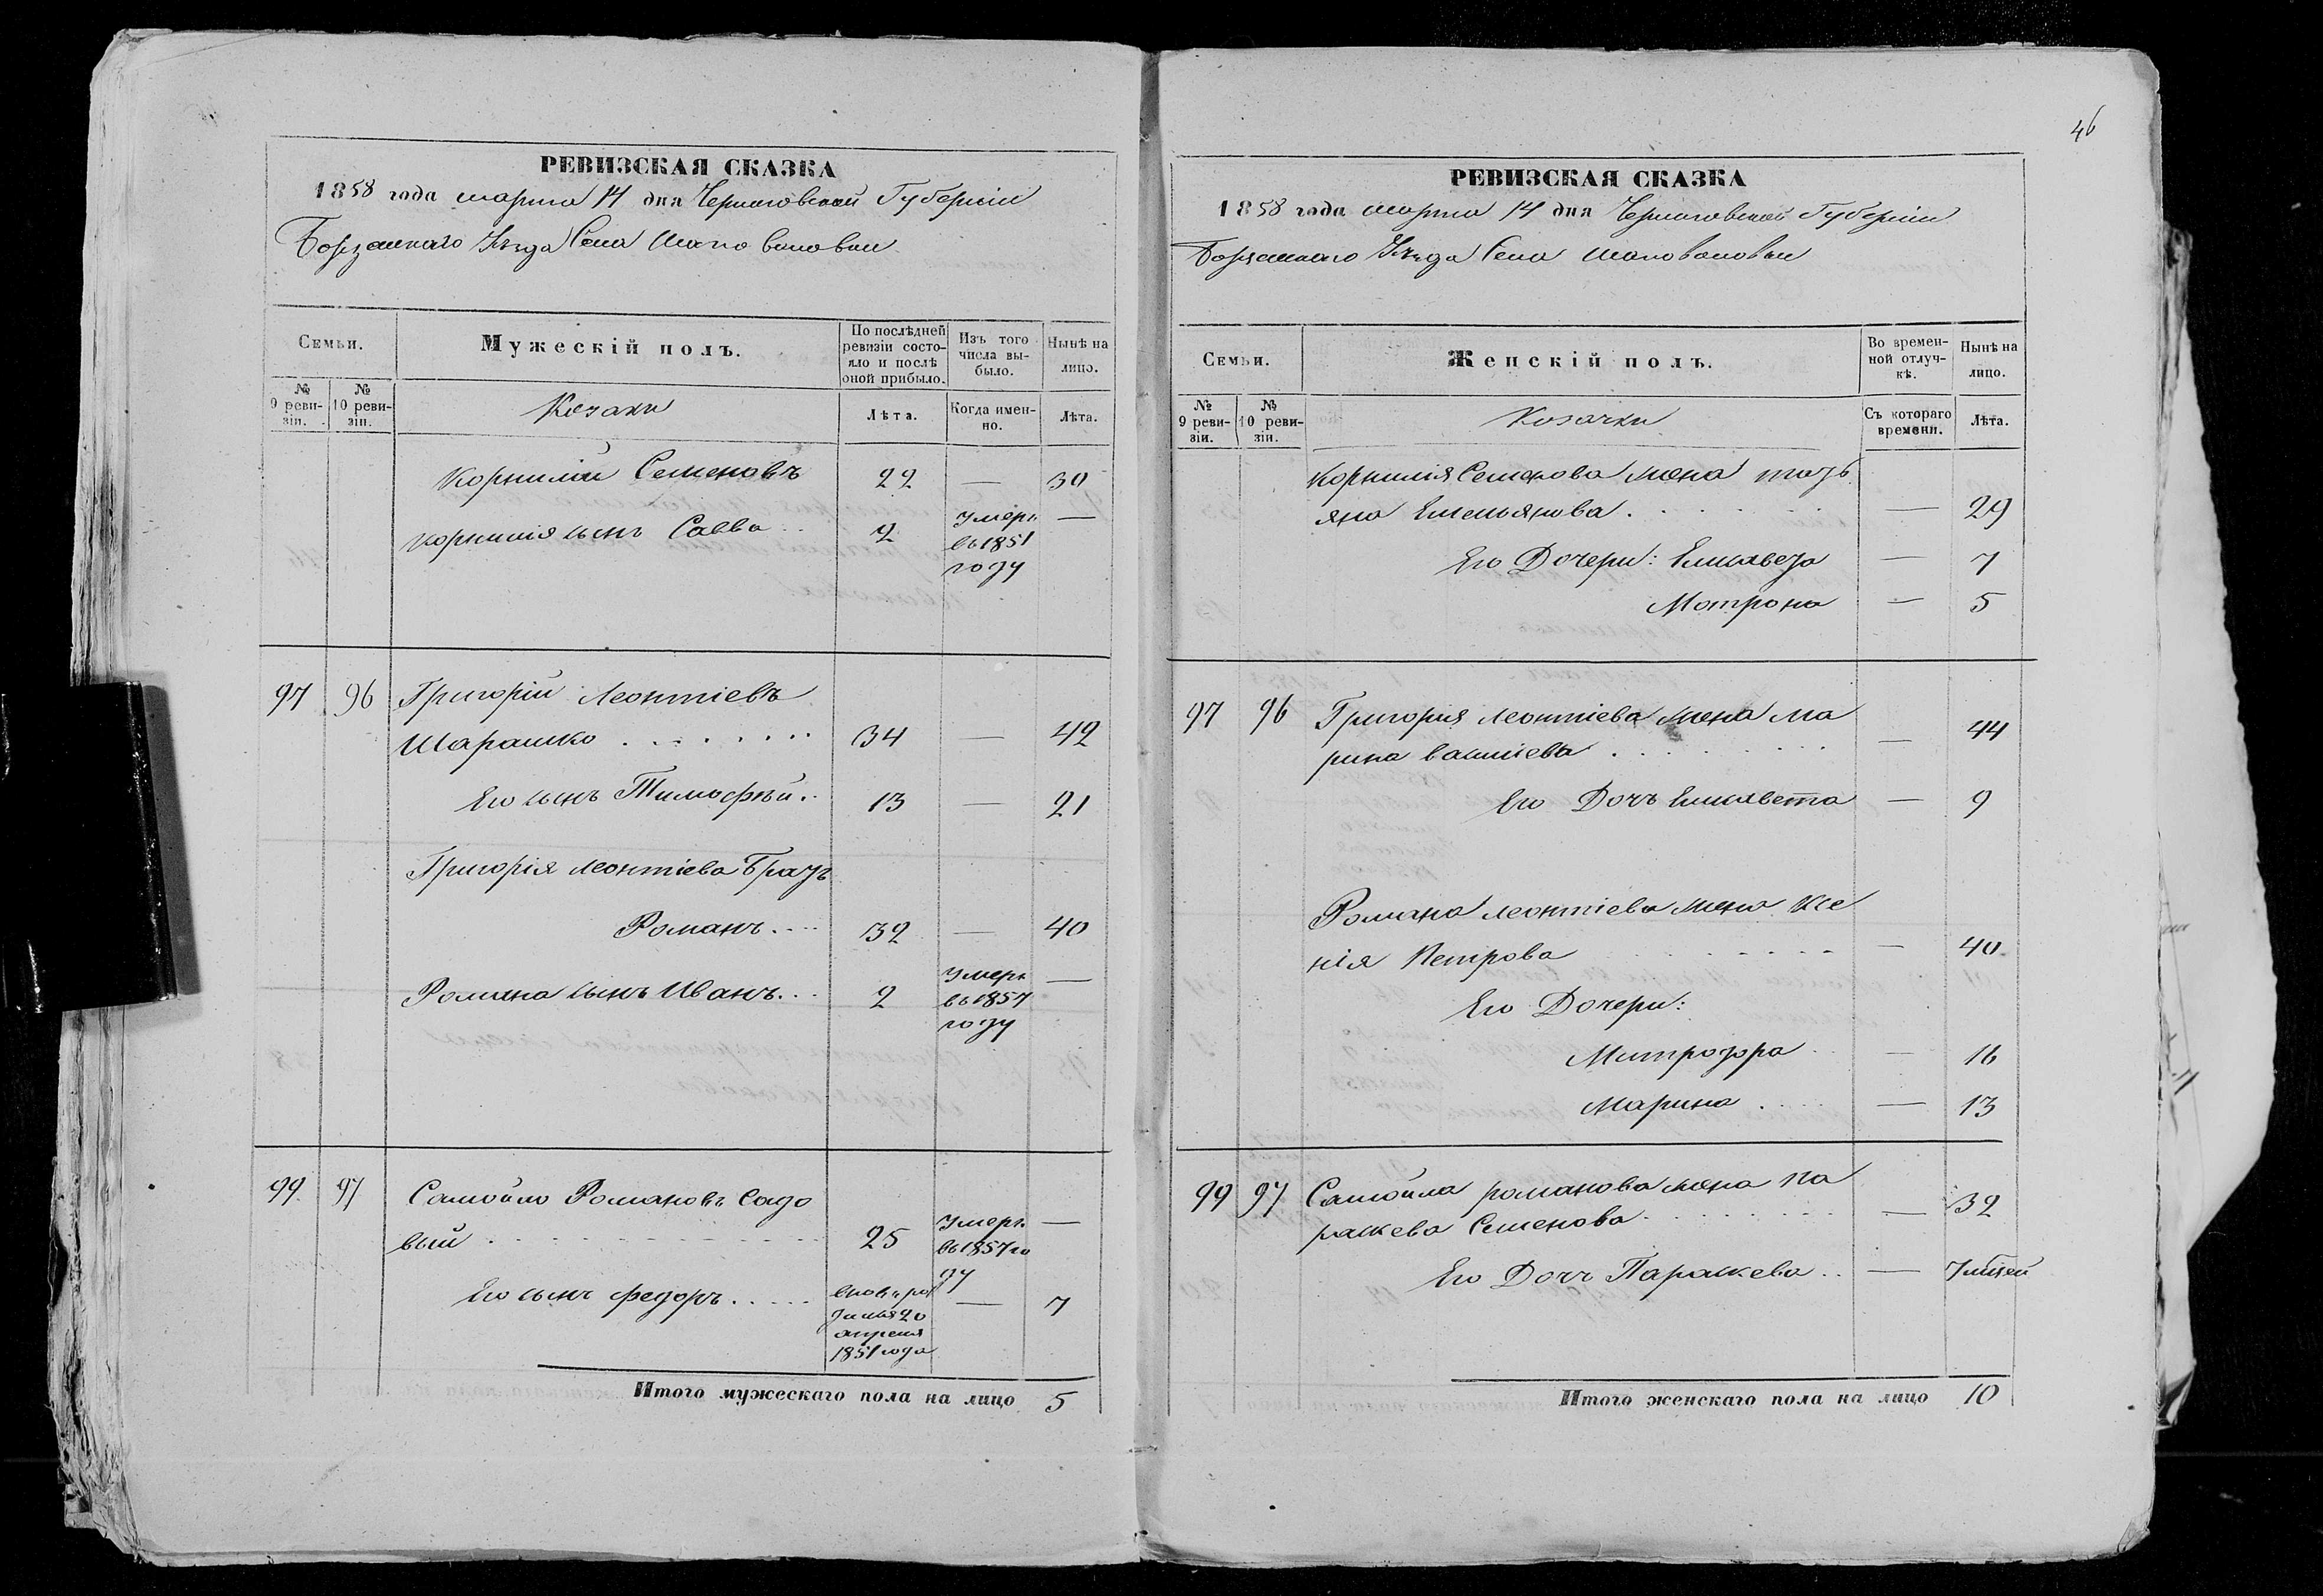 46
РЕВИЗСКАЯ СКАЗКА
1858 года марта 14 дня Черниговской Губерніи
Борзенскаго Уѣзда Села Шаповаловки
Семьи.
Мужескій полъ.
По послѣдней ревизіи состояло и послѣ оной прибыло.
Изъ того числа выбыло.
Нынѣ на лицо.
№ 9 ревизіи.
№ 10 ревизіи.
Козаки
Лѣта.
Когда именно.
Лѣта.
Корнилій Семеновъ 22 — 30
Корнилія сынъ Савва 2 Умеръ —
въ 1851
году
97 96 Григорій Леонтіевъ
Шарашко 34 — 42
Его сынъ Тимофѣй 13 — 21
Григорія Леонтіева Братъ
Романъ 32 — 40
Романа сынъ Иванъ 2 Умеръ —
въ 1857
году
99 97 Самойло Романовъ Садо
вый 25 Умеръ —
въ 1857 го
ду
Его сынъ Федоръ 7
апреля
1851 года
Итого мужескаго пола на лицо 5
РЕВИЗСКАЯ СКАЗКА
1858 года марта 14 дня Черниговской Губерніи
Борзенскаго Уѣзда Села Шаповаловки
Семьи.
Женскій полъ.
Во временной отлучкѣ.
Нынѣ на лицо.
№ 9 ревизіи.
№ 10 ревизіи.
Козачки
Съ котораго времени.
Лѣта.
Корнилія Семенова жена
Емельянова — 29
Его Дочери: Елисавета — 7
Мотрона — 5
97 96 Григорія Леонтіева жена Ма
рина Василіева — 44
Его Дочь Елисавета — 9
Романа Леонтіева жена Ксе
нія Петрова — 40
Его Дочери:
Митродора — 16
Марина — 13
99 97 Самойла Романова жена Па
раскева Семенова — 32
Его Дочь Параскева —
Итого женскаго пола на лицо 10